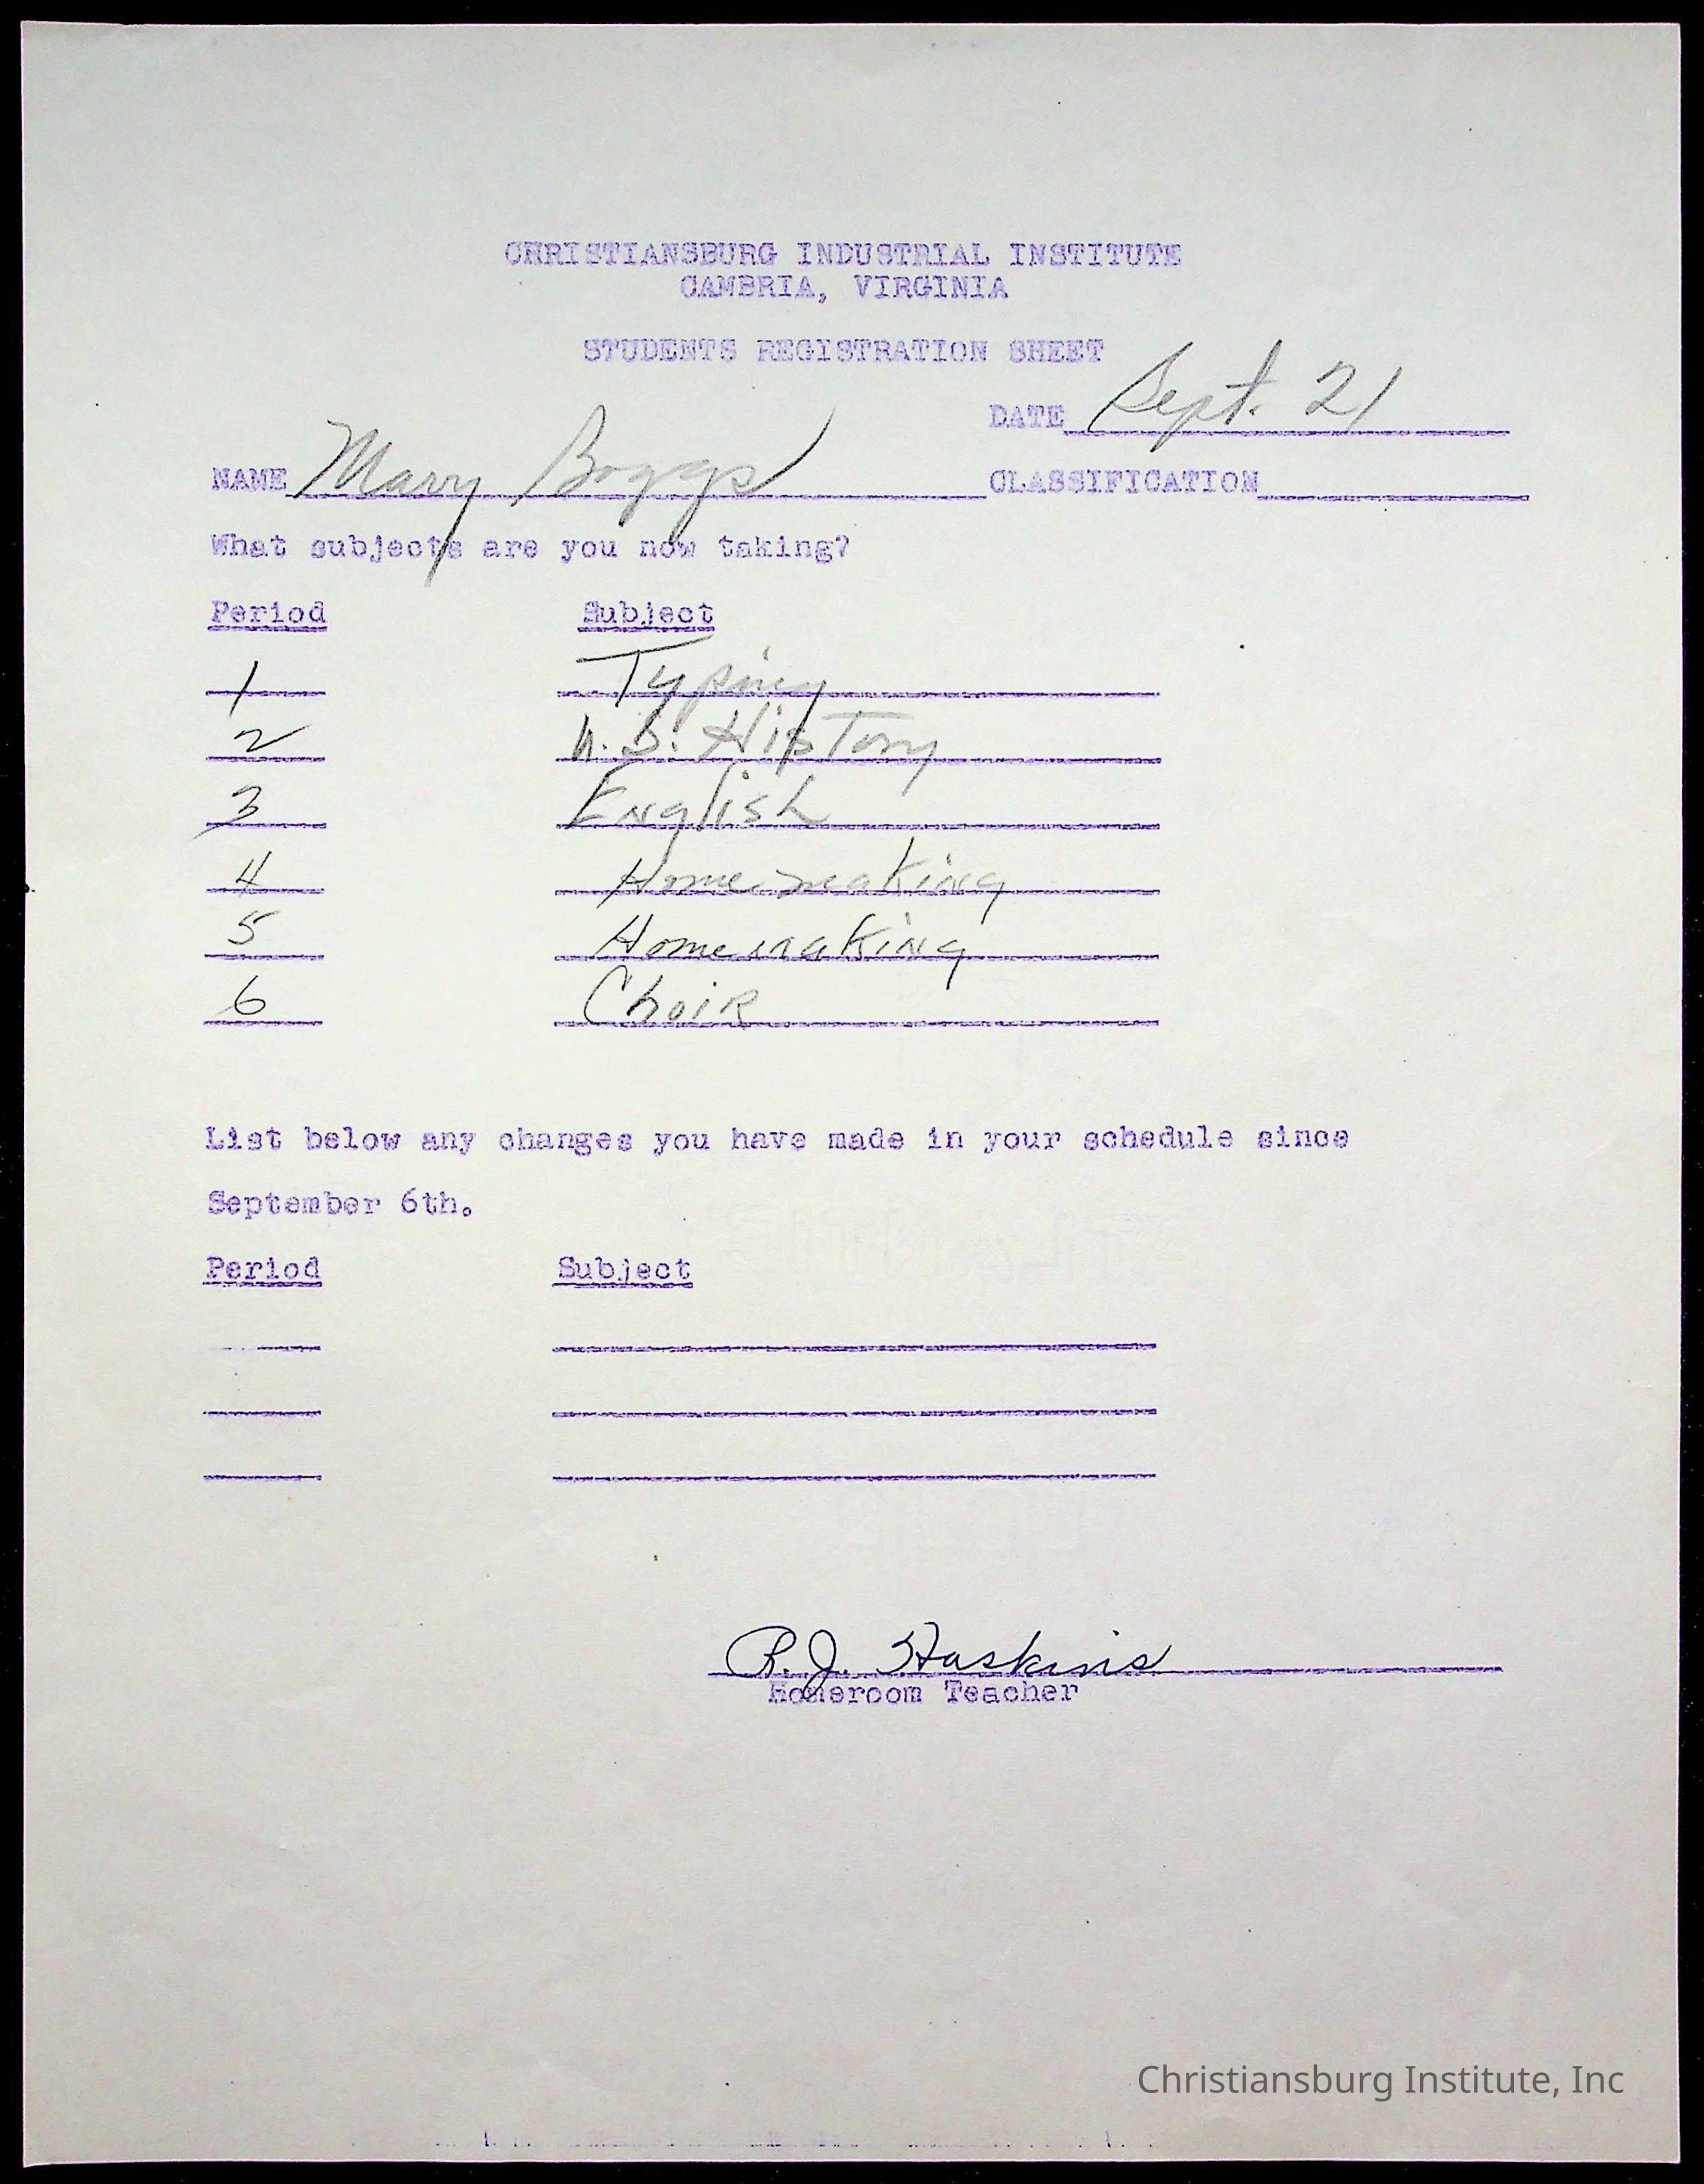 CHRISTIANSBURG INDUSTRIAL INSTITUTE
CAMBRIA, VIRGINIA
STUDENTS REGISTRATION SHEET
DATE Sept. 21
NAME Mary Boggs CLASSIFICATION
What subjects are you now taking?
Period Subject
1 Typing
2 U.S. History
3 English
4 Homemaking
5 Homemaking
6 Choir
List below any changes you have made in your schedule since
September 6th.
Period Subject
R. J. Haskins
Homeroom Teacher
Christiansburg Institute, Inc